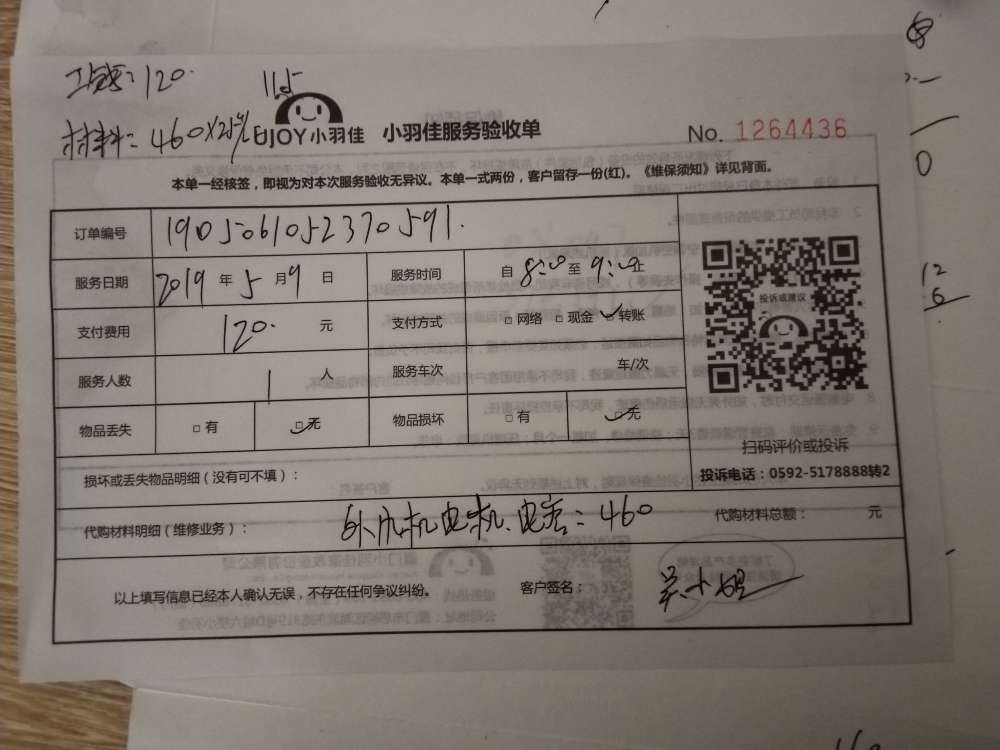 120.
115
材料: 460×25%
EUJOY小羽佳 小羽佳服务验收单
No. 1264436
本单一经核签，即视为对本次服务验收无异议。本单一式两份，客户留存一份(红)。《维保须知》详见背面。
订单编号 1905061052370591.
服务日期 2019 年 5 月 9 日 服务时间 自 8:00 至 9:00 止
支付费用 120. 元 支付方式 □ 网络 □ 现金 ☑ 转账
投诉或建议
服务人数 1 人 服务车次 车/次
物品丢失 □ 有 ☑ 无 物品损坏 □ 有 ☑ 无
扫码评价或投诉
投诉电话：0592-5178888转2
损坏或丢失物品明细（没有可不填）：
代购材料明细（维修业务）： 外机电机、电容: 460 代购材料总额： 元
以上填写信息已经本人确认无误，不存在任何争议纠纷。 客户签名： 吴小姐
0
12
6